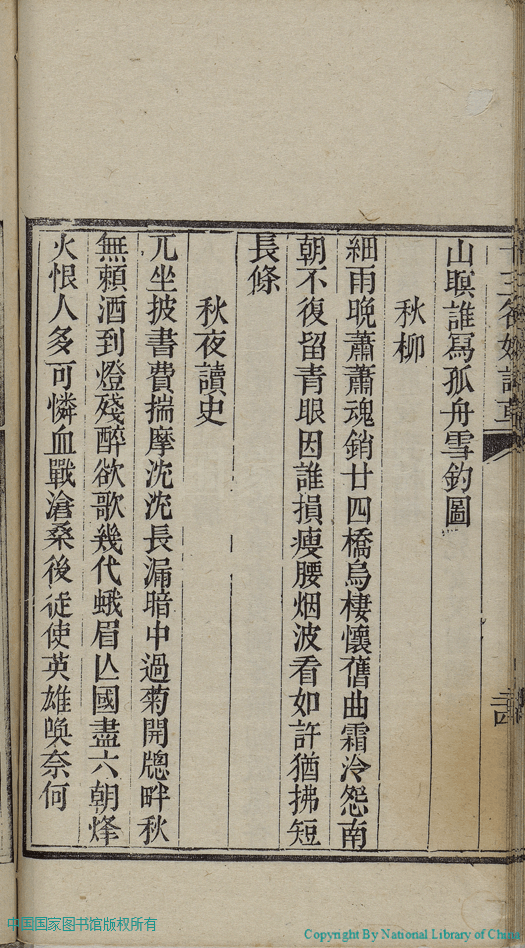 山暝誰寫孤舟雪釣圖
秋柳
細雨晚蕭蕭魂銷廿四橋烏棲懷舊曲霜泠怨南
朝不復留青眼因誰損瘦腰烟波看如許猶拂短
長條
秋夜讀史
兀坐披書費揣摩沈沈長漏暗中過菊開牕畔秋
無賴酒到燈殘醉欲歌幾代蛾眉亾國盡六朝烽
火恨人多可憐血戰滄桑後徒使英雄喚奈何
中国国家图书馆版权所有
Copyright By National Library of China